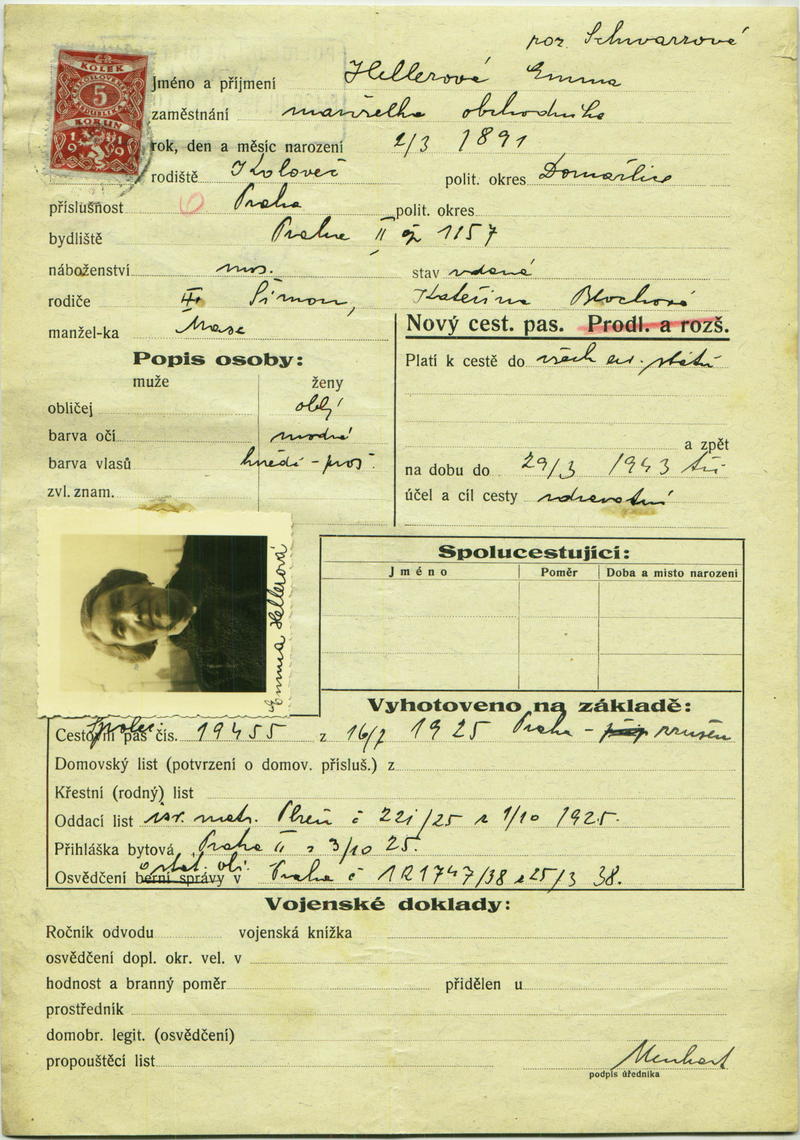 roz. Schwarzová
KOLEK
5
KORUN
1919
Jméno a příjmení Hellerová Emma
zaměstnání manželka obchodníka
rok, den a měsíc narození 2/3 1891
rodiště Koloveč polit. okres Domažlice
příslušnost 6 Praha polit. okres
bydliště Praha II čp 1157
náboženství mos. stav vdaná
rodiče Šimon, Kateřina Blochová
manžel-ka
Nový cest. pas. Prodl. a rozš.
Popis osoby:
Platí k cestě do všech ev. států
muže ženy
obličej oblý
barva očí modré
a zpět
barva vlasů hnědé - proš.
na dobu do 29/3 1943 tří
zvl. znam.
účel a cíl cesty zdravotní
Emma Hellerová
Spolucestující:
Jméno Poměr Doba a místo narození
Vyhotoveno na základě:
Cestovní pas čís. 19455 z 16/7 1925 Praha - zrušen
Domovský list (potvrzení o domov. přísluš.) z
Křestní (rodný) list
Oddací list isr. matr. Plzeň č 221/25 z 1/10 1925.
Přihláška bytová Praha II z 3/10 25.
Osvědčení berní správy v Praha č 121747/38 z 25/3 38.
Vojenské doklady:
Ročník odvodu vojenská knížka
osvědčení dopl. okr. vel. v
hodnost a branný poměr přidělen u
prostředník
domobr. legit. (osvědčení)
propouštěcí list
podpis úředníka